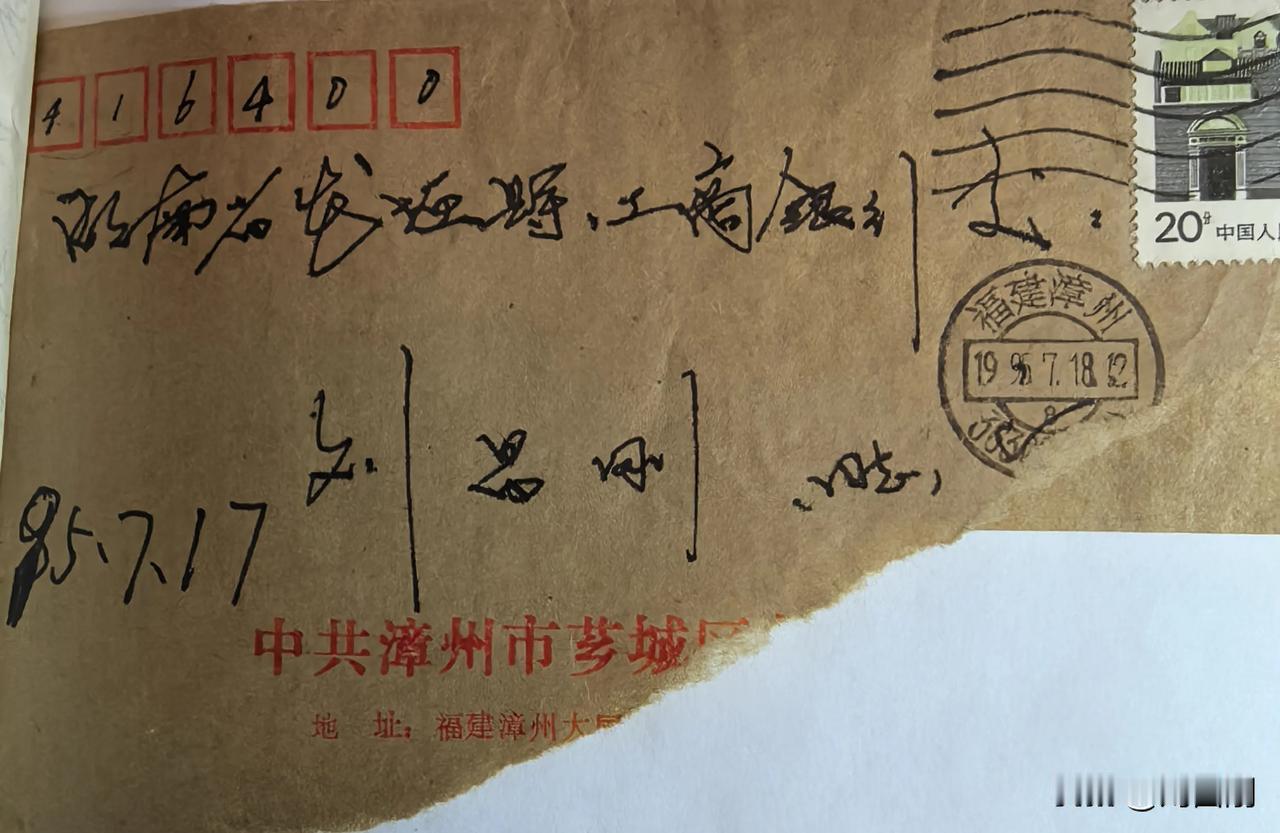 416400
湖南省花垣县、工商银行交：
20分 中国人
福建漳州
1995.7.18.12
刘昌刚 同志
95.7.17
中共漳州市芗城区
地 址：福建漳州大